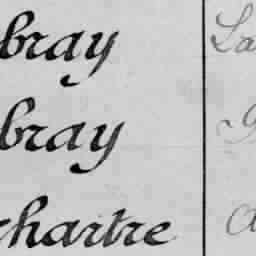 bray La
bray
hartre a